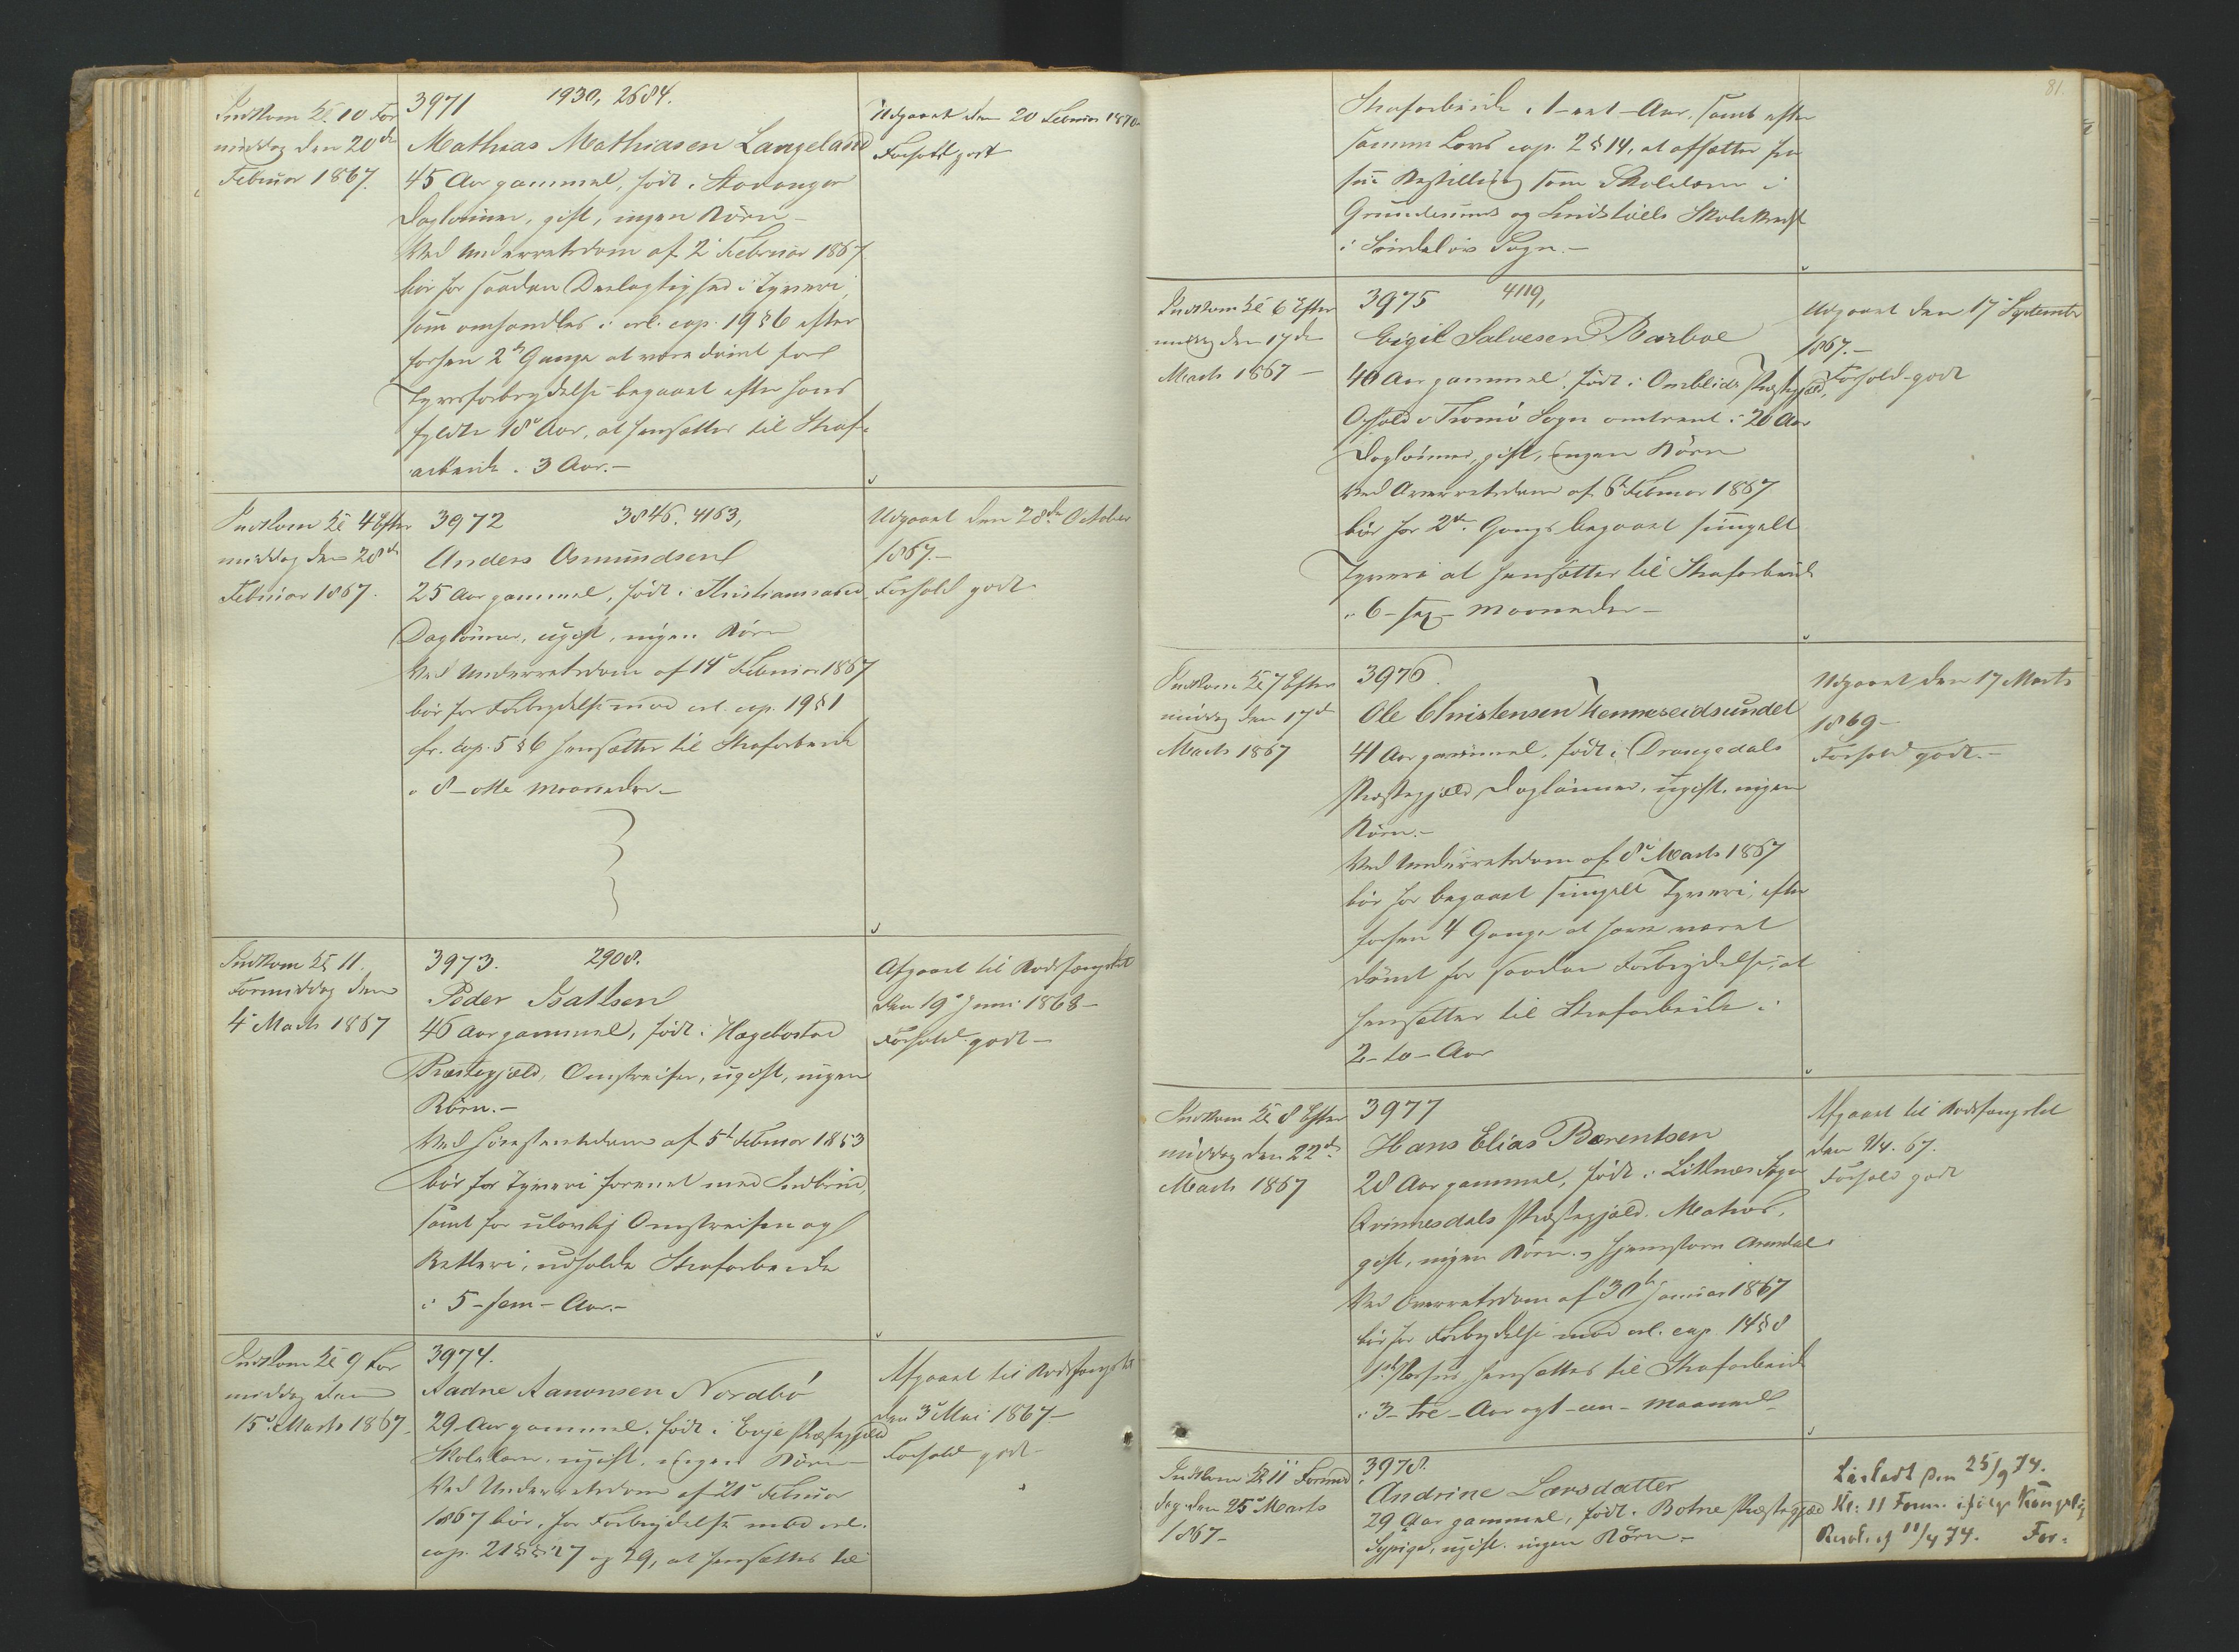 Indkom Kl. 10 For
middag den 20de
Februar 1867.
3971 1930, 2684.
Mathias Mathiasen Langeland
45 Aar gammel, født i Stavanger
Dagleier, gift, ingen Børn –
Ved Underretsdom af 2 Februar 1867
bør for saadan Deelagtighed i Tyveri,
som omhandles i crl. cap. 19 § 6 efter
forhen 2de Gange at være dømt for
Tyvsforbrydelse begaaet efter hans
fyldte 18de Aar, at hensættes til Straf-
arbeide i 3 Aar. –
Udgaaet den 20 Februar 1870
Forhold godt
Indkom Kl 4 Efter
middag den 28de
Februar 1867.
3972 3846. 4163,
Anders Asmundsen
25 Aar gammel, født i Christianssand,
Dagleier, ugift, ingen Børn
Ved Underretsdom af 14de Februar 1867
bør for Forbrydelse mod crl. cap. 19 § 1
fr. cap. 5 § 6 hensættes til Strafarbeide
i 8 – otte Maaneder. –
Udgaaet den 28de October
1867. –
Forhold godt
Indkom Kl 11
Formiddag den
4de Marts 1867
3973. 2908.
Peder Isaksen
46 Aar gammel, født i Hægebostad
Præstegjæld, Omstreifer, ugift, ingen
Børn. –
Ved Høiesteretsdom af 5te Februar 1853
bør for Tyveri forenet med Indbrud,
samt for ulovlig Omstreifen og
Betleri, udholde Strafarbeide
i 5 – fem – Aar. –
Afgaaet til Bodsfængslet
den 19de Juni 1868 –
Forhold godt –
Indkom Kl 9 For
middag den
15de Marts 1867.
3974.
Aadne Aanonsen Nordbø
29 Aar gammel, født i Evje Præstegjæld
Skolelærer, ugift, ingen Børn –
Ved Underretsdom af 21de Februar
1867 bør, for Forbrydelse mod crl.
cap. 21 §§ 27 og 29, at hensættes til
Afgaaet til Bodsfængslet
den 3de Mai 1867 –
Forhold godt
81.
Strafarbeide i 1 – eet – Aar, samt efter
samme Lovs cap. 2 § 14, at afsættes fra
sin Bestilling som Skolelærer i
og Skolekreds
i Søndeløv Sogn. –
Indkom Kl 6 Efter
middag den 17de
Marts 1867 –
3975 4119,
Eigil Salvesen Barboe
40 Aar gammel, født i Omblids Præstegjæld,
Ophold i Tromø Sogn omtrent i 20 Aar
Dagleier, gift, ingen Børn
Ved Overretsdom af 6te Februar 1867
bør for 2den Gang begaaet simpelt
Tyveri at hensættes til Strafarbeide
i 6 – sex – Maaneder –
Udgaaet den 17de September
1867. –
Forhold godt
Indkom Kl 7 Efter
middag den 17de
Marts 1867
3976.
Ole Christensen Henneseidsundet
41 Aar gammel, født i Drangedals
Præstegjæld, Dagleier, ugift, ingen
Børn. –
Ved Underretsdom af 8de Marts 1867
bør for begaaet simpelt Tyveri, efter
forhen 4 Gange at have været
dømt for saadan Forbrydelse, at
hensættes til Strafarbeide i
2 – to – Aar
Udgaaet den 17 Marts
1869 –
Forhold godt. –
Indkom Kl 8 Efter
middag den 22de
Marts 1867
3977
Hans Elias Bærentsen
28 Aar gammel, født i Liknæs Sogn
Qvinnesdals Præstegjæld, Matros,
gift, ingen Børn, Hjemstavn Arendal
Ved Overretsdom af 30te Januar 1867
bør for Forbrydelse mod crl. cap. 14 § 8
hensættes til Strafarbeide
i 3 – tre – Aar og 1 – en – Maaned
Afgaaet til Bodsfængslet
67.
Forhold godt
Indkom Kl 11 Formid
dag den 25de Marts
1867 –
3978.
Andrine Larsdatter
29 Aar gammel, født i Botne Præstegjæld
ugift, ingen Børn –
Løsladt den 25/9 74.
Kl: 11 Form. ifølge Kongelig
Resol. af 11/9 74. For-